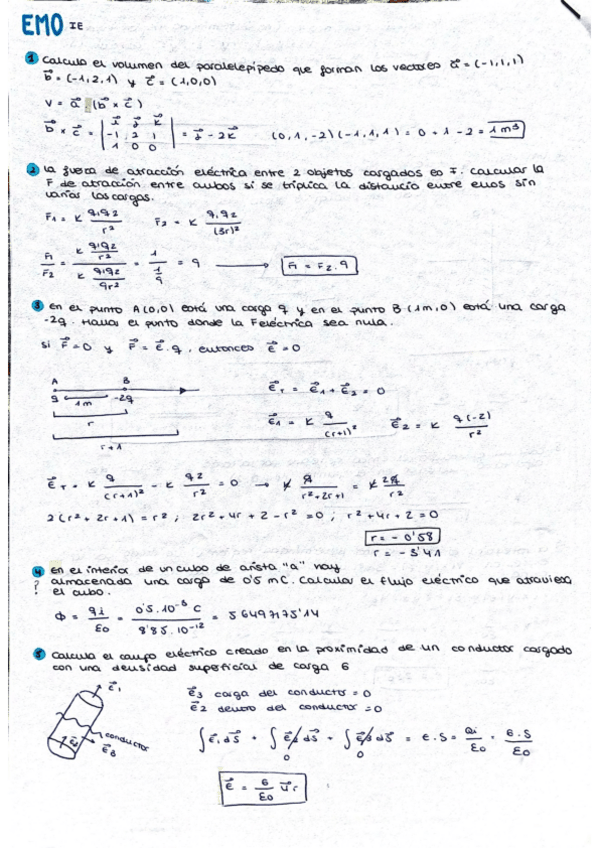 EMO IE
1 Calcula el volumen del paralelepípedo que forman los vectores a⃗ = (-1,1,1)
b⃗ = (-1,2,1) y c⃗ = (1,0,0)
V = a⃗ · (b⃗ × c⃗)
b⃗ × c⃗ = | i⃗ j⃗ k⃗ ; -1 2 1 ; 1 0 0 | = j⃗ - 2k⃗ (0,1,-2)(-1,1,1) = 0 + 1 - 2 = 1 m³
2 La fuerza de atracción eléctrica entre 2 objetos cargados es F. Calcular la
F de atracción entre ambos si se triplica la distancia entre ellos sin
variar las cargas.
F1 = K q1q2 / r² F2 = K q1q2 / (3r)²
F1 / F2 = (K q1q2 / r²) / (K q1q2 / 9r²) = 1 / (1/9) = 9 → F1 = F2 · 9
3 En el punto A(0,0) está una carga q y en el punto B (1m,0) está una carga
-2q. Halla el punto donde la F eléctrica sea nula.
si F⃗ = 0 y F⃗ = E⃗ . q , entonces E⃗ = 0
A B
q 1m -2q
r
r + 1
E⃗T = E⃗1 + E⃗2 = 0
E⃗1 = K q / (r+1)² E⃗2 = K q(-2) / r²
E⃗T = K q / (r+1)² - K q2 / r² = 0 → K q / r²+2r+1 = K 2q / r²
2(r² + 2r + 1) = r² ; 2r² + 4r + 2 - r² = 0 ; r² + 4r + 2 = 0
r = - 0'58
r = - 3'41
4 En el interior de un cubo de arista "a" hay
? almacenada una carga de 0'5 mC. Calcular el flujo eléctrico que atraviesa
el cubo.
Φ = qi / ε0 = 0'5 · 10⁻³ C / 8'85 · 10⁻¹² = 56497175'14
5 Calcula el campo eléctrico creado en la proximidad de un conductor cargado
con una densidad superficial de carga б
E⃗1
conductor
E⃗2
E⃗3
E⃗3 carga del conductor = 0
E⃗2 dentro del conductor = 0
∫ E⃗1 dS⃗ + ∫ E⃗2 dS⃗ + ∫ E⃗3 dS⃗ = E . S = Qi / ε0 = б . S / ε0
0 0
E⃗ = б / ε0 u⃗r